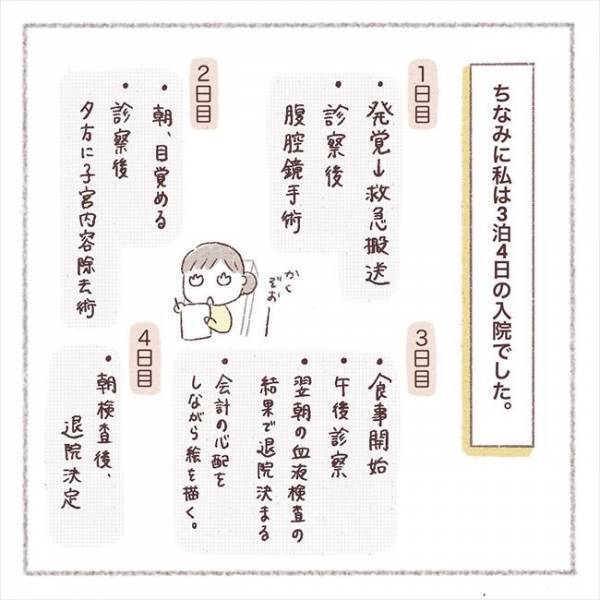 ちなみに私は3泊4日の入院でした。
1日目
・発覚→救急搬送
・診察後
腹腔鏡手術
2日目
・朝、目覚める
・診察後
夕方に子宮内容除去術
かく
ぞお
3日目
・食事開始
・午後診察
・翌朝の血液検査の
結果で退院決まる
・会計の心配を
しながら絵を描く。
4日目
・朝検査後、
退院決定